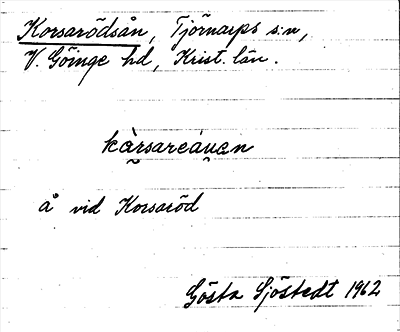 Korsarödsån, Tjörnarps s:n,
V. Göinge hd, Krist. län.
kàrsareáu̯en
å vid Korsaröd
Gösta Sjöstedt 1962